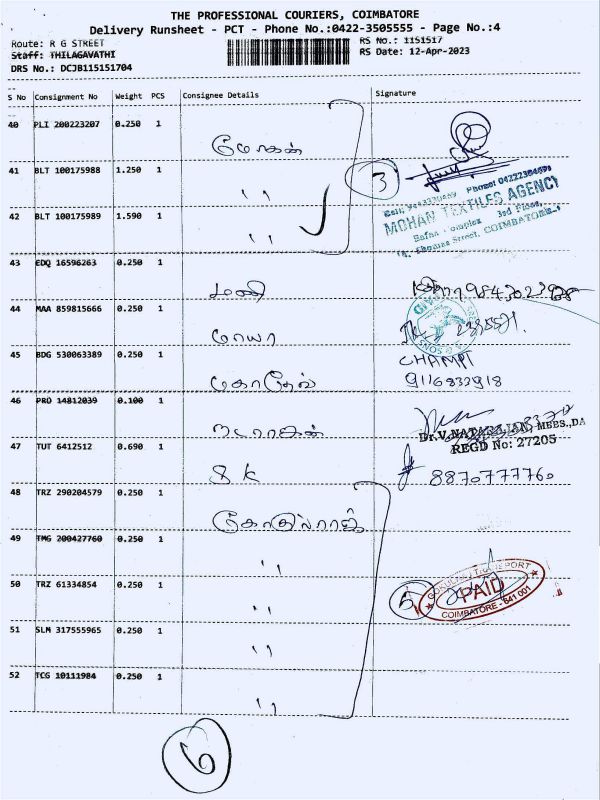 THE PROFESSIONAL COURIERS, COIMBATORE
Delivery Runsheet - PCT - Phone No.:0422-3505555 - Page No.:4
Route: R G STREET
RS No.: 1151517
Staff: THILAGAVATHI
RS Date: 12-Apr-2023
DRS No.: DCJB115151704
S No Consignment No Weight PCS Consignee Details Signature
40 PLI 200223207 0.250 1
மோகன்
41 BLT 100175988 1.250 1
" 3
MOHAN TEXTILES AGENCY
3rd Floor,
COIMBATORE
42 BLT 100175989 1.590 1
"
43 EDQ 16596263 0.250 1
மணி
44 MAA 859815666 0.250 1
மாயா
45 BDG 530063389 0.250 1
CHAMPI
9116833918
46 PRO 14812039 0.100 1
நடராஜன்
Dr.V.NATARAJAN, MBBS.,DA
REGD No: 27205
47 TUT 6412512 0.690 1
S K 8870777760
48 TRZ 290204579 0.250 1
49 TMG 200427760 0.250 1
"
50 TRZ 61334854 0.250 1
" 5
TRANSPORT
PAID
COIMBATORE - 641 001
51 SLM 317555965 0.250 1
"
52 TCG 10111984 0.250 1
"
6